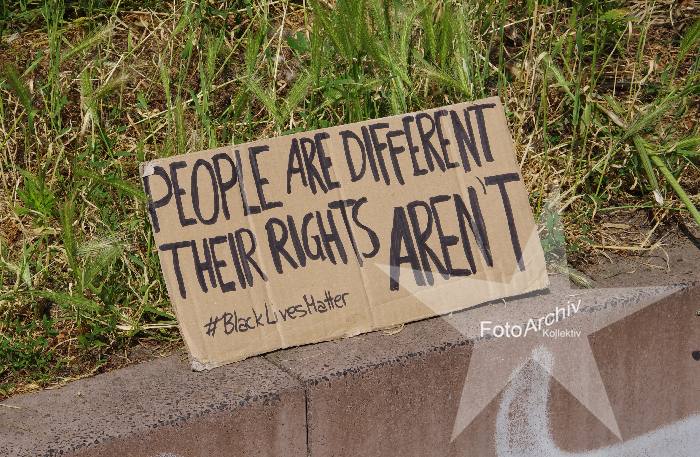 PEOPLE ARE DIFFERENT
THEIR RIGHTS AREN'T
#BlackLivesMatter
FotoArchiv
Kollektiv